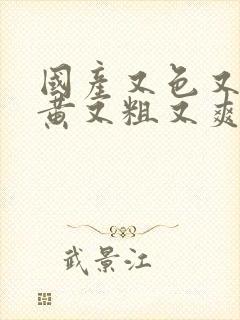 國產又色又
黃又粗又爽
武景江